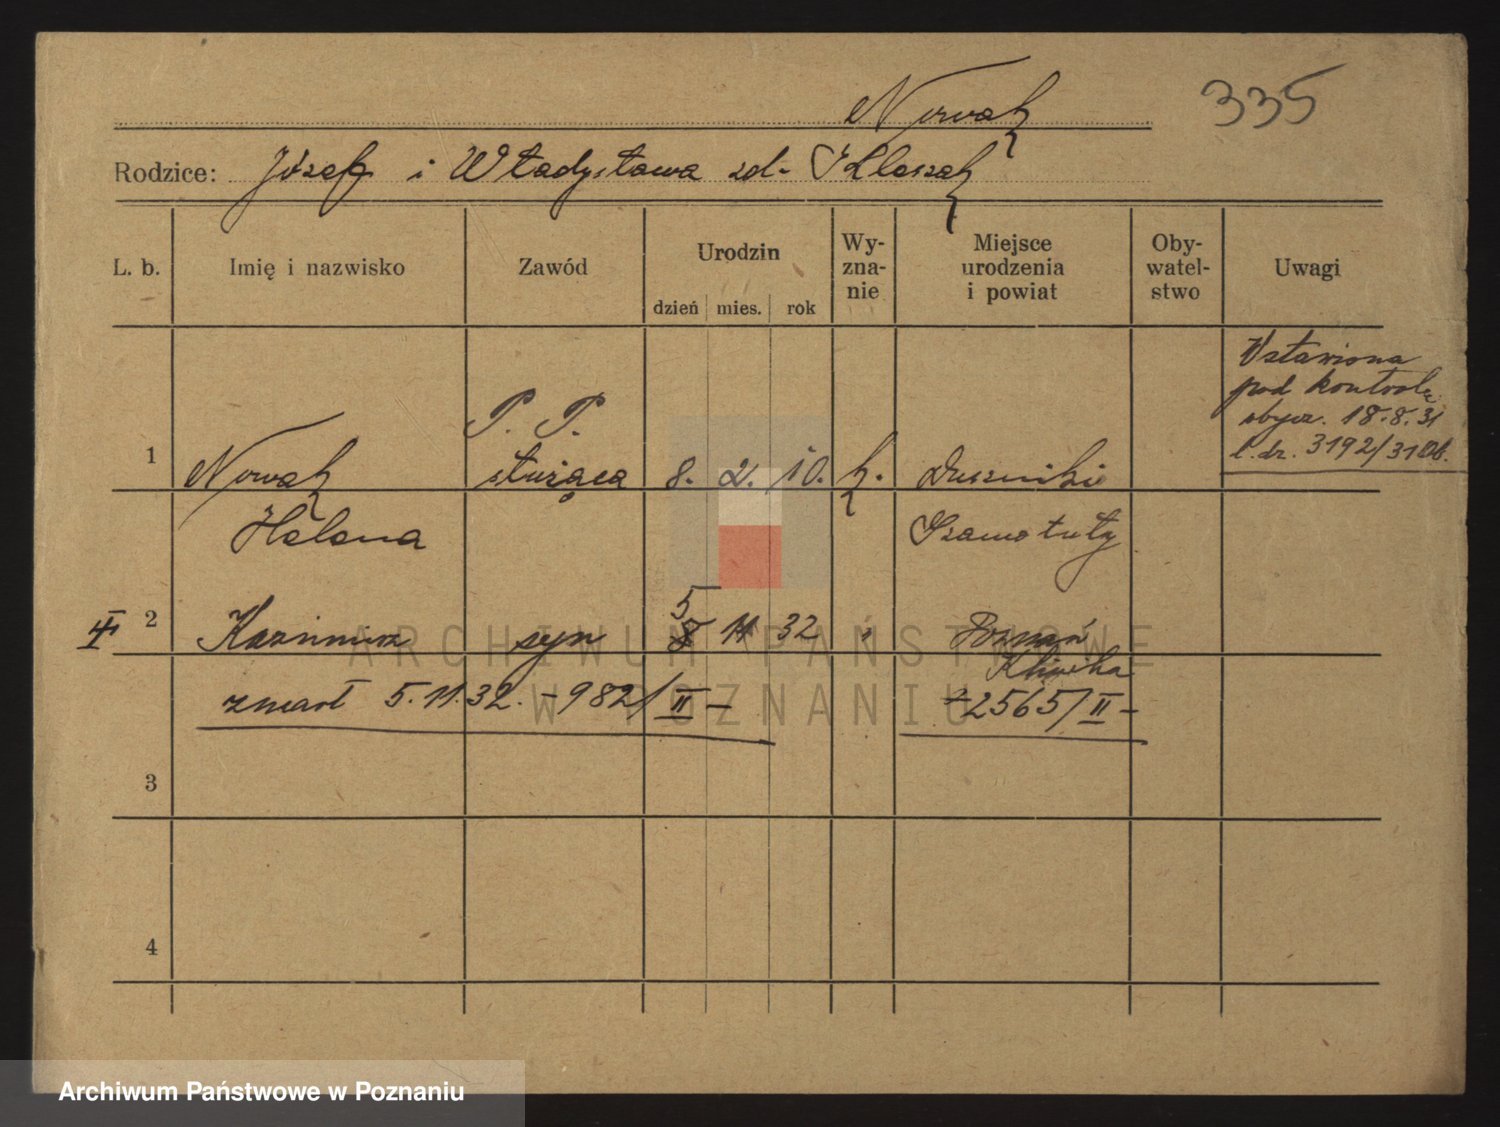 Nowak
335
Rodzice: Józef i Władysława zd-
L. b.
Imię i nazwisko
Zawód
Urodzin
dzień mies. rok
Wy-
zna-
nie
Miejsce
urodzenia
i powiat
Oby-
watel-
stwo
Uwagi
Wstawiona
pod kontrolę
obycz. 18.8.31
l.dz. 3192/31 Ob.
P. P.
1 Nowak służąca 8. 2. 10. k. Duszniki
Helena Szamotuły
2 Kazimierz syn 5 8 11 32 Poznań
Klinika
zmarł 5.11.32. - 982/II - 2565/II -
3
4
ARCHIWUM PAŃSTWOWE
W POZNANIU
Archiwum Państwowe w Poznaniu